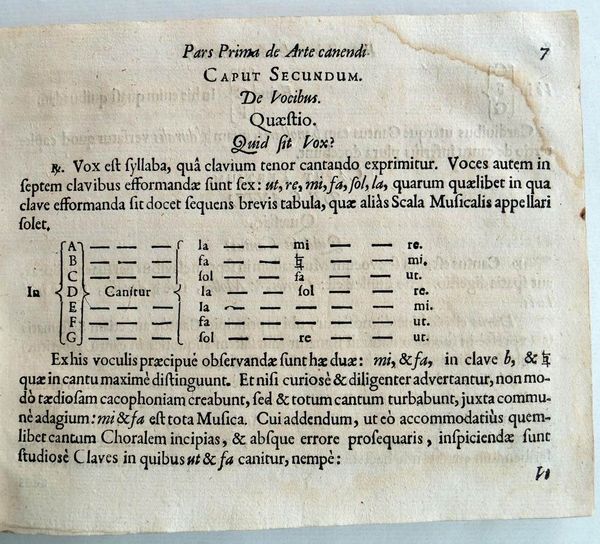 Pars Prima de Arte canendi 7
CAPUT SECUNDUM.
De Vocibus.
Quæstio.
Quid sit Vox?
℞. Vox est syllaba, quâ clavium tenor cantando exprimitur. Voces autem in
septem clavibus efformandæ sunt sex: ut, re, mi, fa, sol, la, quarum quælibet in qua
clave efformanda sit docet sequens brevis tabula, quæ aliàs Scala Musicalis appellari
solet.
A — — — la — — mi — — re.
B — — — fa — — ♮ — — mi.
C — — — sol — — fa — — ut.
In D — Canitur — la — — sol — — re.
E — — — la — — — — — mi.
F — — — fa — — — — — ut.
G — — — sol — — re — — ut.
Ex his voculis præcipuè observandæ sunt hæ duæ: mi, & fa, in clave b, & ♮
quæ in cantu maximè distinguunt. Et nisi curiosè & diligenter advertantur, non mo-
dò tædiosam cacophoniam creabunt, sed & totum cantum turbabunt, juxta commu-
nè adagium: mi & fa est tota Musica. Cui addendum, ut eò accommodatiùs quem-
libet cantum Choralem incipias, & absque errore prosequaris, inspiciendæ sunt
studiosè Claves in quibus ut & fa canitur, nempè: